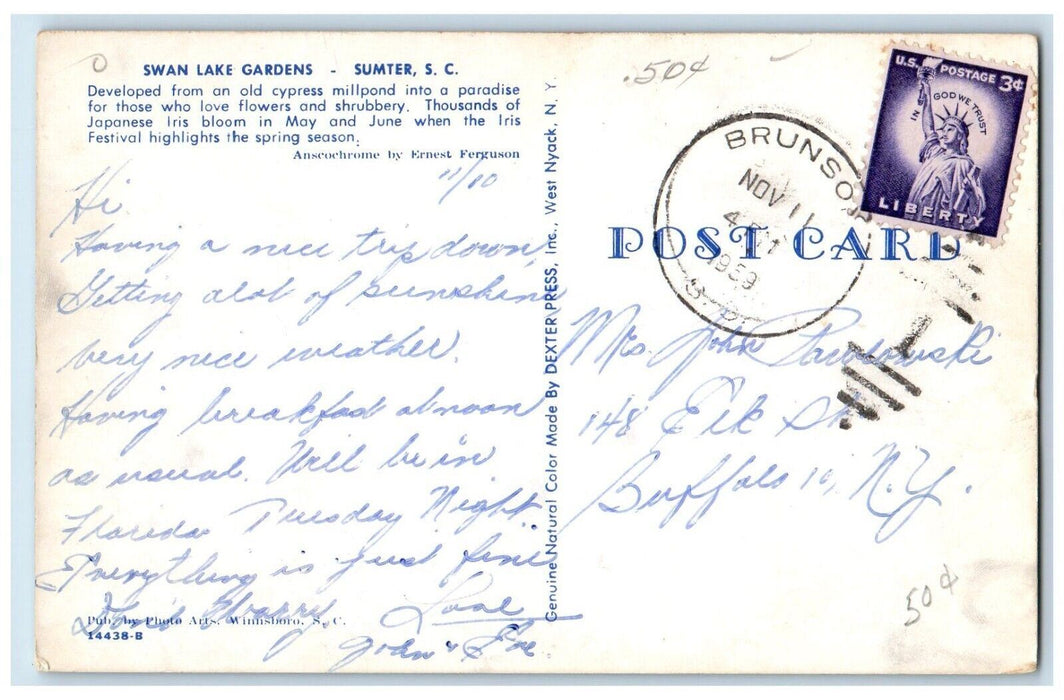 SWAN LAKE GARDENS - SUMTER, S. C.
Developed from an old cypress millpond into a paradise
for those who love flowers and shrubbery. Thousands of
Japanese Iris bloom in May and June when the Iris
Festival highlights the spring season.
Anscochrome by Ernest Ferguson
11/10
Hi
Having a nice trip down,
Getting alot of sunshine
very nice weather.
Having breakfast at noon
as usual. Will be in
Florida Tuesday Night.
Everything is just fine
Don't Worry Love
John &
Pub. by Photo Arts, Winnsboro, S. C.
14438-B
Genuine Natural Color Made By DEXTER PRESS, Inc., West Nyack, N. Y.
.50¢
BRUNSON
NOV 11
1959
S.C.
U.S. POSTAGE 3¢
IN GOD WE TRUST
LIBERTY
POST CARD
Mrs. John Pawlowski
148 Elk St.
Buffalo 10, N.Y.
50¢